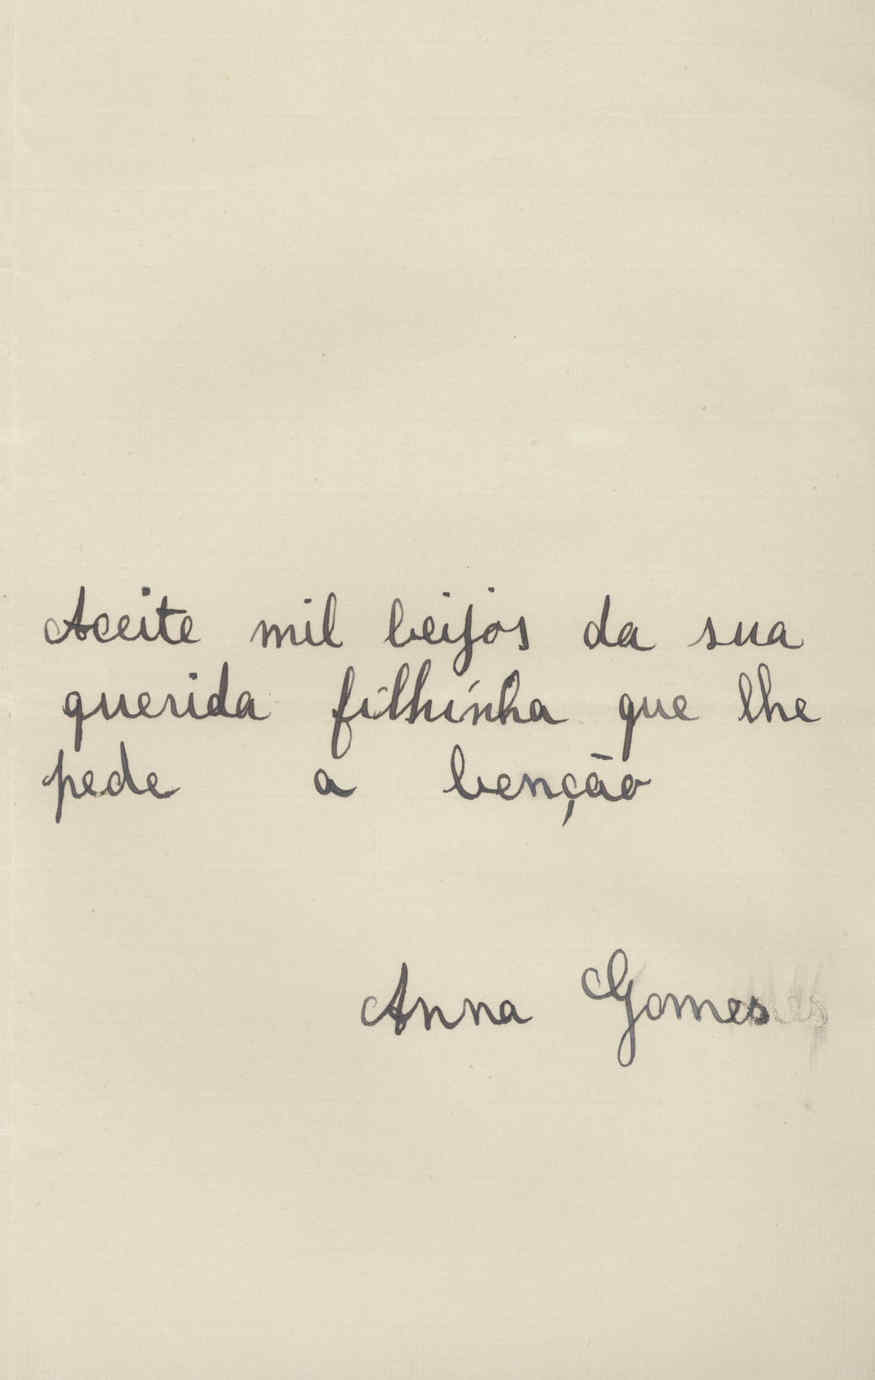 Aceite mil beijos da sua
querida filhinha que lhe
pede a benção
Anna Gomes